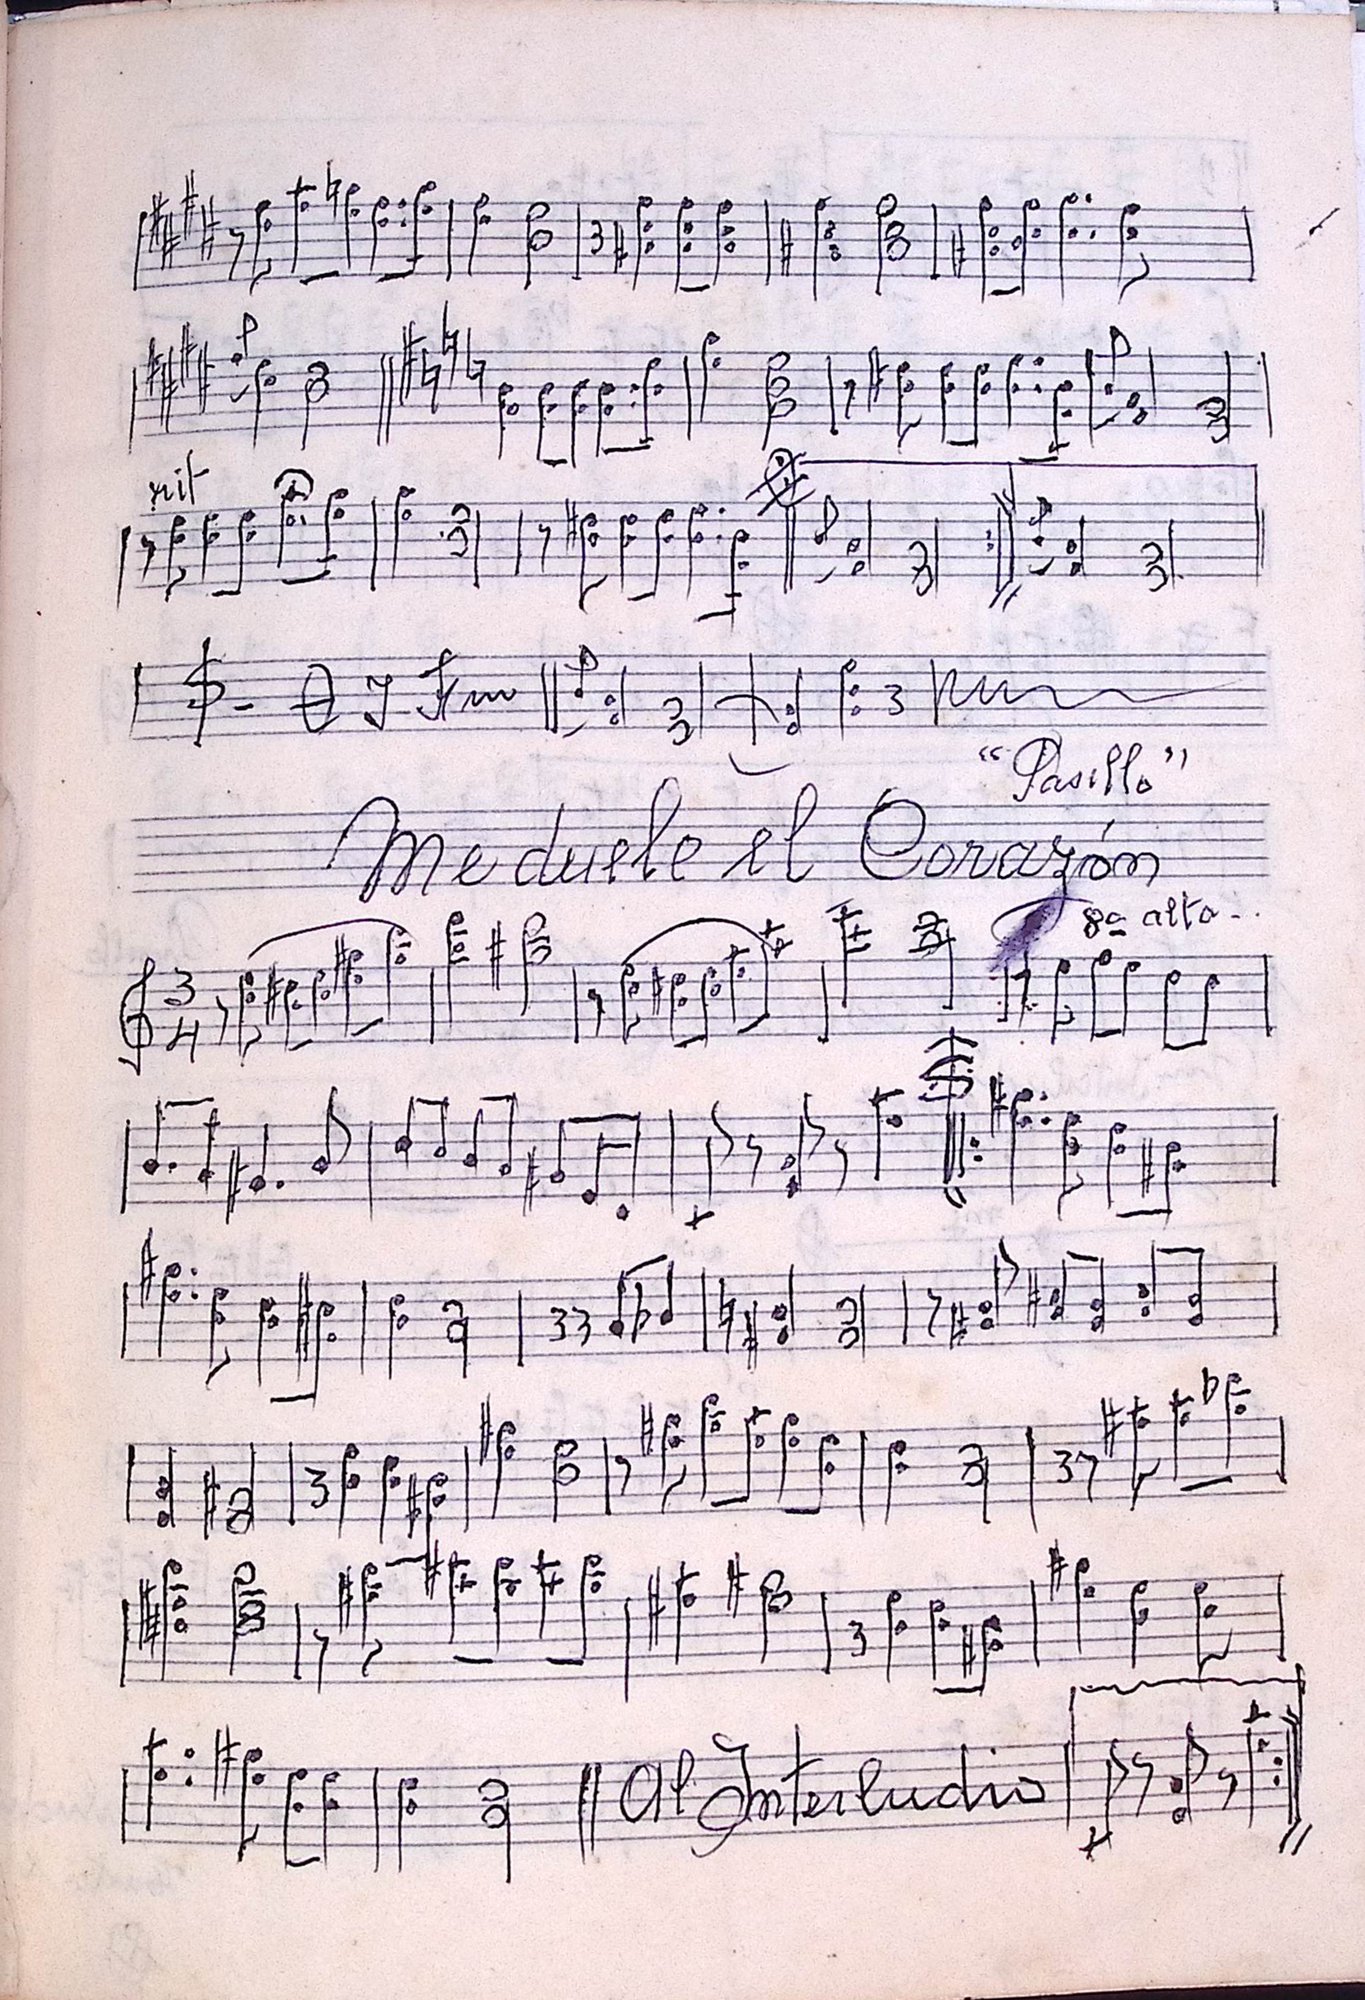 rit
y Fin
"Pasillo"
Me duele el Corazón
8a alta -..
3
4
Al Interludio